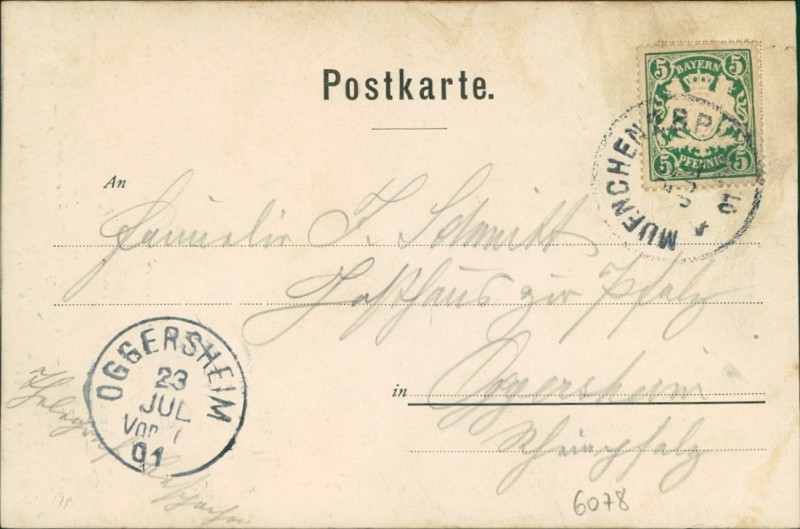 Postkarte.
5 BAYERN 5
5 PFENNIG 5
MUENCHEN B.P. 01
An
Familie F. Schmitt
Gasthaus zur Pfalz
in Oggersheim
Rheinpfalz
OGGERSHEIM
23
JUL
Vor
01
6078